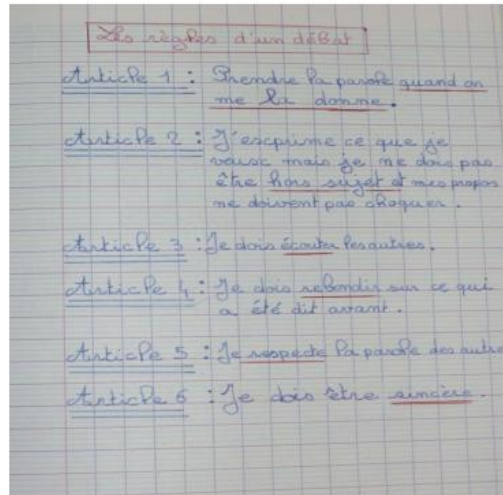 Les règles d'un débat
Article 1 : Prendre la parole quand on
me la donne.
Article 2 : J'exprime ce que je
veux mais je ne dois pas
être hors sujet et mes propos
ne doivent pas choquer.
Article 3 : Je dois écouter les autres.
Article 4 : Je dois rebondir sur ce qui
a été dit avant.
Article 5 : Je respecte la parole des autre
Article 6 : Je dois être sincère.